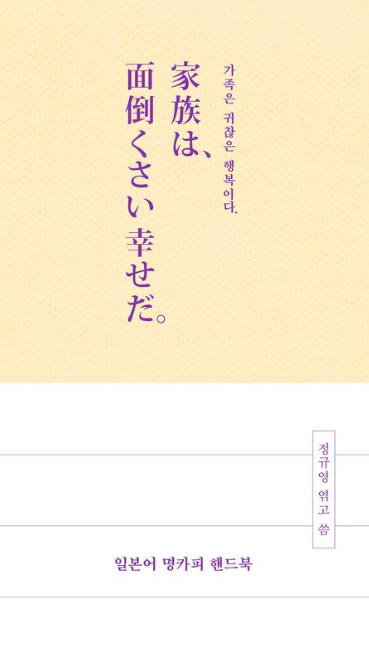 가족은 귀찮은 행복이다.
家族は、
面倒くさい 幸せだ。
정규영 엮고 씀
일본어 명카피 핸드북